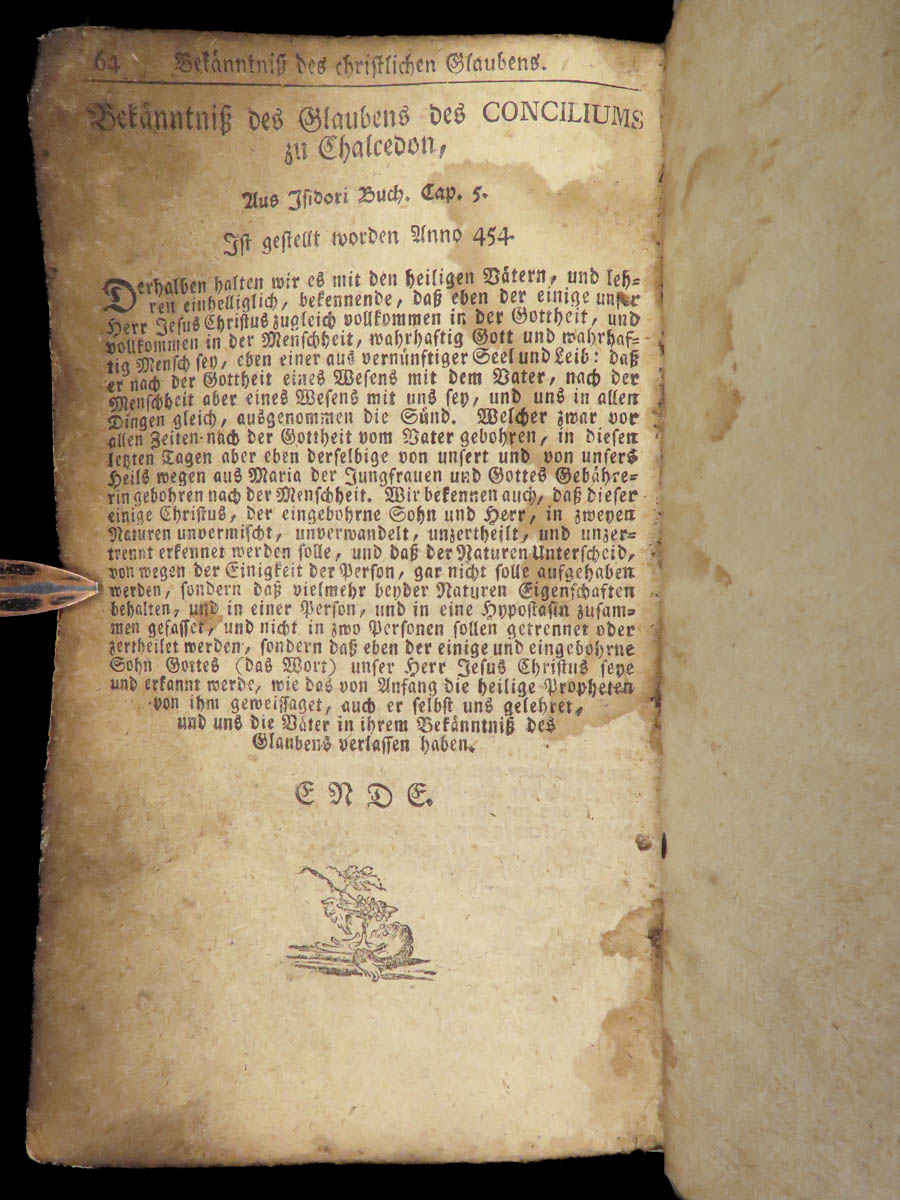 64 Bekänntniß des christlichen Glaubens.
Bekänntniß des Glaubens des CONCILIUMS
zu Chalcedon,
Aus Isidori Buch. Cap. 5.
Ist gestellt worden Anno 454.
Derhalben halten wir es mit den heiligen Vätern, und leh-
ren einhelliglich, bekennende, daß eben der einige unser
Herr Jesus Christus zugleich vollkommen in der Gottheit, und
vollkommen in der Menschheit, wahrhaftig Gott und wahrhaf-
tig Mensch sey, eben einer aus vernünftiger Seel und Leib: daß
er nach der Gottheit eines Wesens mit dem Vater, nach der
Menschheit aber eines Wesens mit uns sey, und uns in allen
Dingen gleich, ausgenommen die Sünd. Welcher zwar vor
allen Zeiten nach der Gottheit vom Vater gebohren, in diesen
letzten Tagen aber eben derselbige von unsert und von unsers
Heils wegen aus Maria der Jungfrauen und Gottes Gebähre-
rin gebohren nach der Menschheit. Wir bekennen auch, daß dieser
einige Christus, der eingebohrne Sohn und Herr, in zweyen
Naturen unvermischt, unverwandelt, unzertheilt, und unzer-
trennt erkennet werden solle, und daß der Naturen Unterscheid,
von wegen der Einigkeit der Person, gar nicht solle aufgehaben
werden, sondern daß vielmehr beyder Naturen Eigenschaften
behalten, und in einer Person, und in eine Hypostasin zusam-
men gefasset, und nicht in zwo Personen sollen getrennet oder
zertheilet werden, sondern daß eben der einige und eingebohrne
Sohn Gottes (das Wort) unser Herr Jesus Christus seye
und erkannt werde, wie das von Anfang die heilige Propheten
von ihm geweissaget, auch er selbst uns gelehret,
und uns die Väter in ihrem Bekänntniß des
Glaubens verlassen haben.
ENDE.